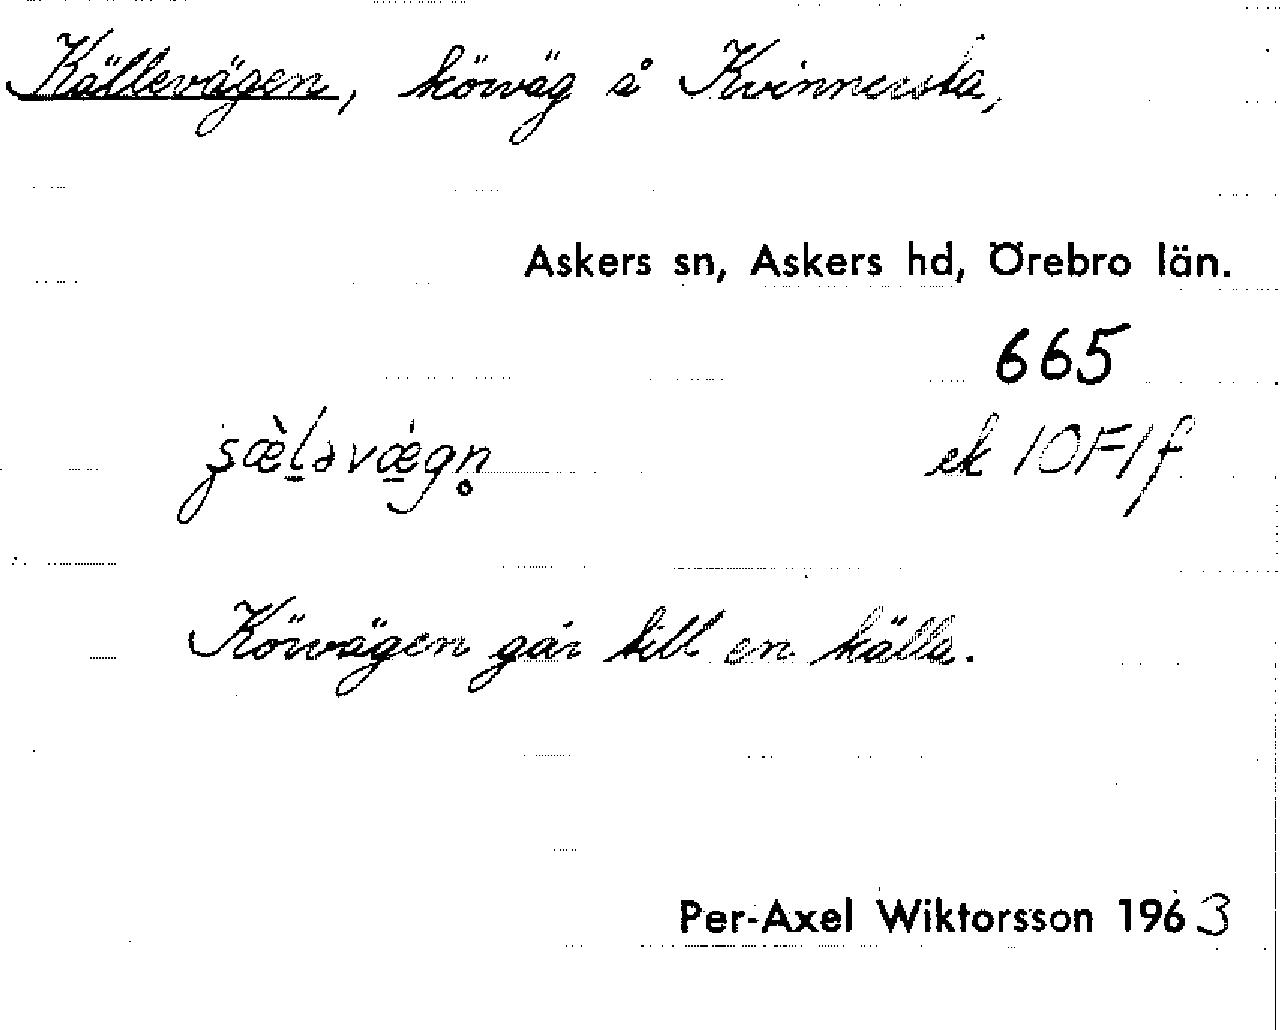 Källevägen, körväg å Kvinnersta,
Askers sn, Askers hd, Örebro län.
665
ek 10F1f
Körvägen går till en källa.
Per-Axel Wiktorsson 1963